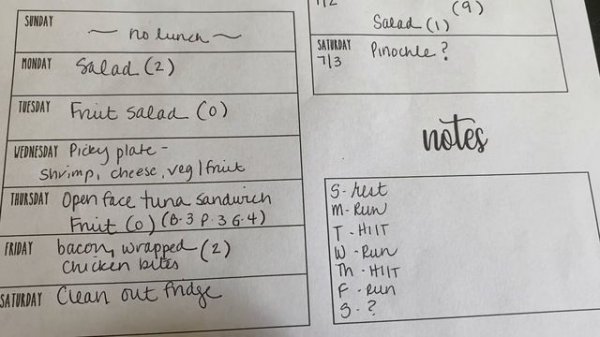 SUNDAY
~ no lunch ~
MONDAY Salad (2)
TUESDAY Fruit Salad (0)
WEDNESDAY Picky plate -
Shrimp, cheese, veg/fruit
THURSDAY Open face tuna sandwich
Fruit (0) (B-3 P-3 G-4)
FRIDAY bacon, wrapped (2)
chicken bites
SATURDAY Clean out fridge
7/2
(9)
Salad (1)
SATURDAY Pinochle?
7/3
notes
S - rest
M - Run
T - HIIT
W - Run
Th - HIIT
F - Run
S - ?